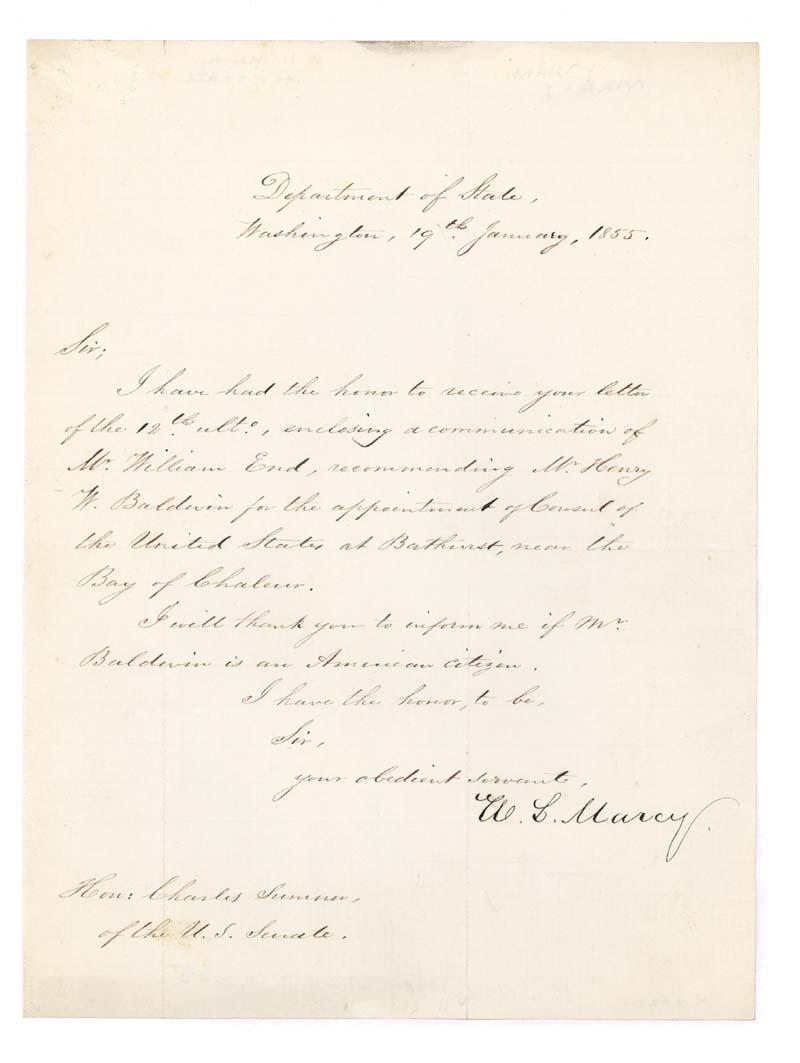 Department of State,
Washington, 19th January, 1855.
Sir;
I have had the honor to receive your letter
of the 12th ulto, enclosing a communication of
Mr. William End, recommending Mr. Henry
W. Baldwin for the appointment of Consul of
the United States at Bathurst, near the
Bay of Chaleur.
I will thank you to inform me if Mr.
Baldwin is an American citizen.
I have the honor, to be,
Sir,
your obedient servant,
W. L. Marcy.
Hon: Charles Sumner,
of the U.S. Senate.